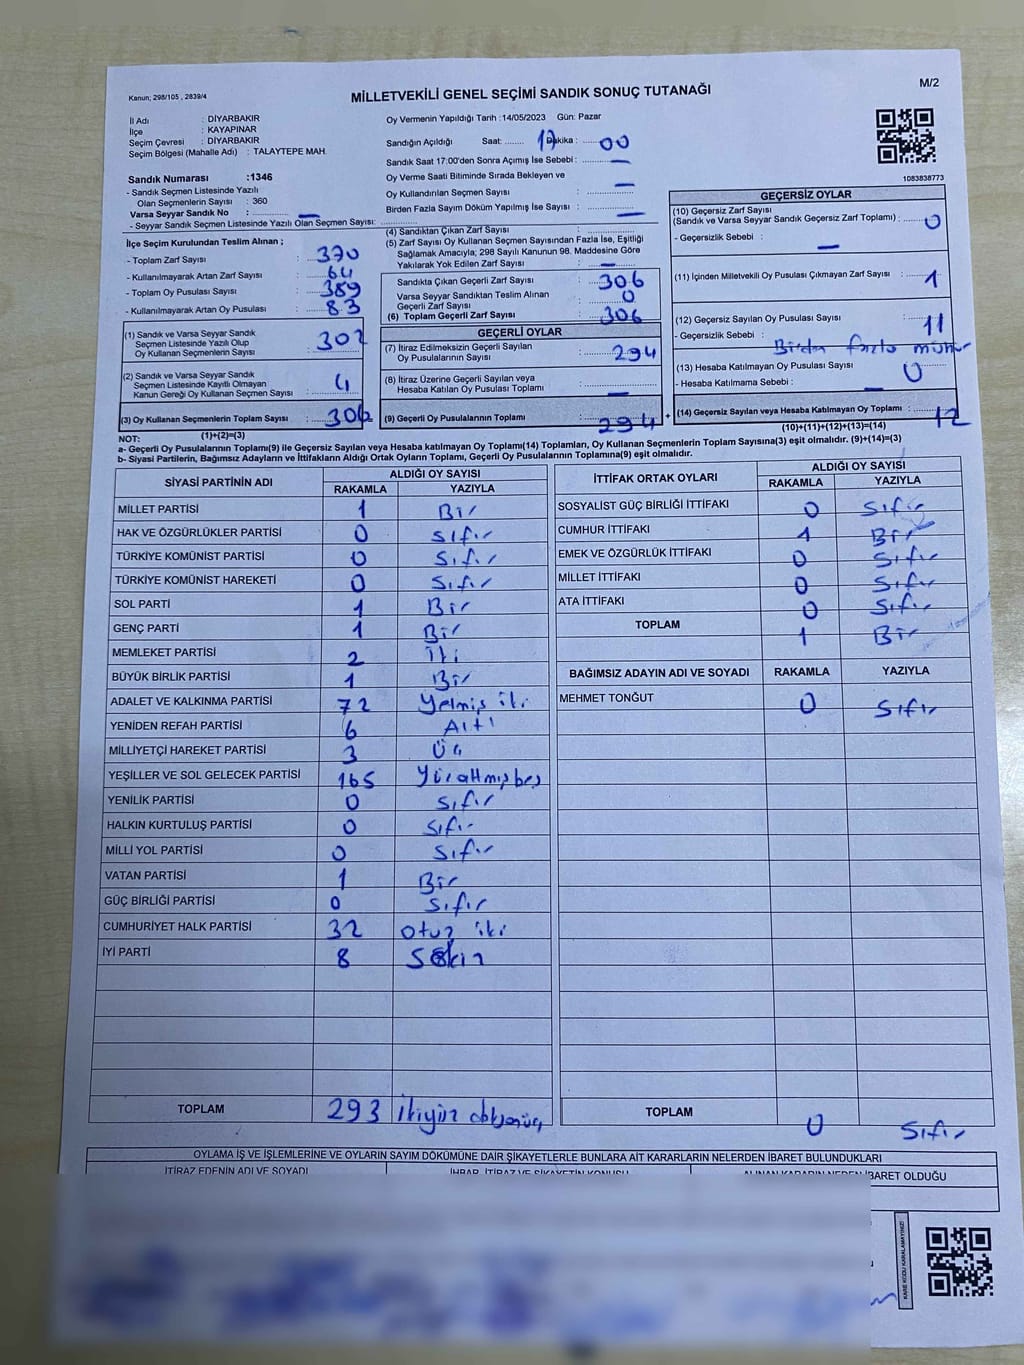 Kanun; 298/105 , 2839/4
MİLLETVEKİLİ GENEL SEÇİMİ SANDIK SONUÇ TUTANAĞI
M/2
İl Adı : DİYARBAKIR
İlçe : KAYAPINAR
Seçim Çevresi : DİYARBAKIR
Seçim Bölgesi (Mahalle Adı) : TALAYTEPE MAH.
Sandık Numarası :1346
- Sandık Seçmen Listesinde Yazılı
Olan Seçmenlerin Sayısı : 360
Varsa Seyyar Sandık No : —
- Seyyar Sandık Seçmen Listesinde Yazılı Olan Seçmen Sayısı:
Oy Vermenin Yapıldığı Tarih :14/05/2023 Gün: Pazar
Sandığın Açıldığı Saat: 17 Dakika : 00
Sandık Saat 17:00'den Sonra Açılmış İse Sebebi : —
Oy Verme Saati Bitiminde Sırada Bekleyen ve
Oy Kullandırılan Seçmen Sayısı —
Birden Fazla Sayım Döküm Yapılmış İse Sayısı : —
1083838773
İlçe Seçim Kurulundan Teslim Alınan ;
- Toplam Zarf Sayısı : 370
- Kullanılmayarak Artan Zarf Sayısı : 64
- Toplam Oy Pusulası Sayısı : 389
- Kullanılmayarak Artan Oy Pusulası : 83
(1) Sandık ve Varsa Seyyar Sandık
Seçmen Listesinde Yazılı Olup
Oy Kullanan Seçmenlerin Sayısı : 302
(2) Sandık ve Varsa Seyyar Sandık
Seçmen Listesinde Kayıtlı Olmayan
Kanun Gereği Oy Kullanan Seçmen Sayısı : 4
(3) Oy Kullanan Seçmenlerin Toplam Sayısı : 306
(1)+(2)=(3)
(4) Sandıktan Çıkan Zarf Sayısı :
(5) Zarf Sayısı Oy Kullanan Seçmen Sayısından Fazla İse, Eşitliği
Sağlamak Amacıyla; 298 Sayılı Kanunun 98. Maddesine Göre
Yakılarak Yok Edilen Zarf Sayısı : —
Sandıkta Çıkan Geçerli Zarf Sayısı : 306
Varsa Seyyar Sandıktan Teslim Alınan
Geçerli Zarf Sayısı : 0
(6) Toplam Geçerli Zarf Sayısı : 306
GEÇERLİ OYLAR
(7) İtiraz Edilmeksizin Geçerli Sayılan
Oy Pusulalarının Sayısı : 294
(8) İtiraz Üzerine Geçerli Sayılan veya
Hesaba Katılan Oy Pusulası Toplamı : —
(9) Geçerli Oy Pusulalarının Toplamı : 294
GEÇERSİZ OYLAR
(10) Geçersiz Zarf Sayısı
(Sandık ve Varsa Seyyar Sandık Geçersiz Zarf Toplamı) : 0
- Geçersizlik Sebebi : —
(11) İçinden Milletvekili Oy Pusulası Çıkmayan Zarf Sayısı : 1
(12) Geçersiz Sayılan Oy Pusulası Sayısı : 11
- Geçersizlik Sebebi : Birden fazla mühür
(13) Hesaba Katılmayan Oy Pusulası Sayısı : 0
- Hesaba Katılmama Sebebi : —
+ (14) Geçersiz Sayılan veya Hesaba Katılmayan Oy Toplamı : 12
(10)+(11)+(12)+(13)=(14)
NOT:
a- Geçerli Oy Pusulalarının Toplamı(9) ile Geçersiz Sayılan veya Hesaba katılmayan Oy Toplamı(14) Toplamları, Oy Kullanan Seçmenlerin Toplam Sayısına(3) eşit olmalıdır. (9)+(14)=(3)
b- Siyasi Partilerin, Bağımsız Adayların ve İttifakların Aldığı Ortak Oyların Toplamı, Geçerli Oy Pusulalarının Toplamına(9) eşit olmalıdır.
SİYASİ PARTİNİN ADI ALDIĞI OY SAYISI
RAKAMLA YAZIYLA
MİLLET PARTİSİ 1 Bir
HAK VE ÖZGÜRLÜKLER PARTİSİ 0 Sıfır
TÜRKİYE KOMÜNİST PARTİSİ 0 Sıfır
TÜRKİYE KOMÜNİST HAREKETİ 0 Sıfır
SOL PARTİ 1 Bir
GENÇ PARTİ 1 Bir
MEMLEKET PARTİSİ 2 İki
BÜYÜK BİRLİK PARTİSİ 1 Bir
ADALET VE KALKINMA PARTİSİ 72 Yetmiş iki
YENİDEN REFAH PARTİSİ 6 Altı
MİLLİYETÇİ HAREKET PARTİSİ 3 Üç
YEŞİLLER VE SOL GELECEK PARTİSİ 165 Yüzaltmışbeş
YENİLİK PARTİSİ 0 Sıfır
HALKIN KURTULUŞ PARTİSİ 0 Sıfır
MİLLİ YOL PARTİSİ 0 Sıfır
VATAN PARTİSİ 1 Bir
GÜÇ BİRLİĞİ PARTİSİ 0 Sıfır
CUMHURİYET HALK PARTİSİ 32 otuz iki
İYİ PARTİ 8 Sekiz
TOPLAM 293 ikiyüz doksanüç
İTTİFAK ORTAK OYLARI ALDIĞI OY SAYISI
RAKAMLA YAZIYLA
SOSYALİST GÜÇ BİRLİĞİ İTTİFAKI 0 Sıfır
CUMHUR İTTİFAKI 1 Bir
EMEK VE ÖZGÜRLÜK İTTİFAKI 0 Sıfır
MİLLET İTTİFAKI 0 Sıfır
ATA İTTİFAKI 0 Sıfır
TOPLAM 1 Bir
BAĞIMSIZ ADAYIN ADI VE SOYADI RAKAMLA YAZIYLA
MEHMET TONĞUT 0 Sıfır
TOPLAM 0 Sıfır
OYLAMA İŞ VE İŞLEMLERİNE VE OYLARIN SAYIM DÖKÜMÜNE DAİR ŞİKAYETLERLE BUNLARA AİT KARARLARIN NELERDEN İBARET BULUNDUKLARI
İTİRAZ EDENİN ADI VE SOYADI İHBAR, İTİRAZ VE ŞİKAYETİN KONUSU ALINAN KARARIN NEDEN İBARET OLDUĞU
KARE KODU KARALAMAYINIZ!